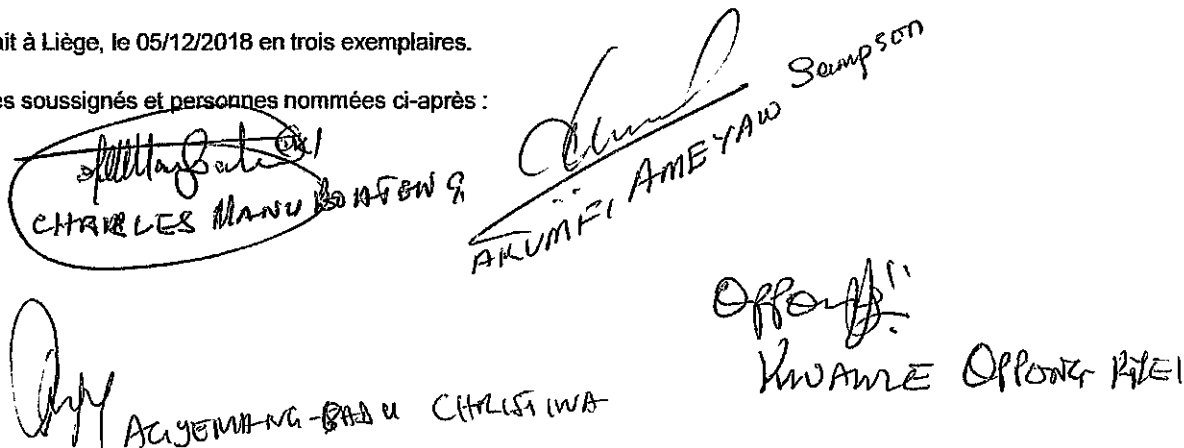 ait à Liège, le 05/12/2018 en trois exemplaires.
es soussignés et personnes nommées ci-après :
CHARLES MANU BOATENG
AKUMFI AMEYAW Sampson
KWAME OPPONG
AGYEMANG-BADU CHRISTINA